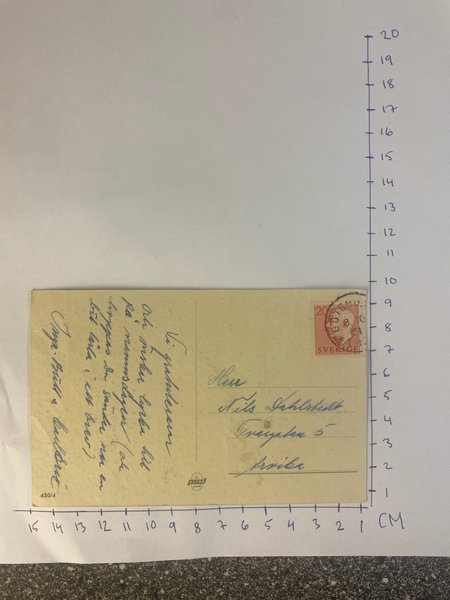 20
19
18
17
16
15
14
13
12
11
10
9
8
7
6
5
4
3
2
1
CM
15 14 13 12 11 10 9 8 7 6 5 4 3 2 1
Vi gratulerar
och önskar lycka till
på namnsdagen (och
hoppas du sänder mer en
bit tårta, i ett brev)
Inga-Britt &
20
SVERIGE
Herr
Nils Dahlstedt
5
Arvika
450/4